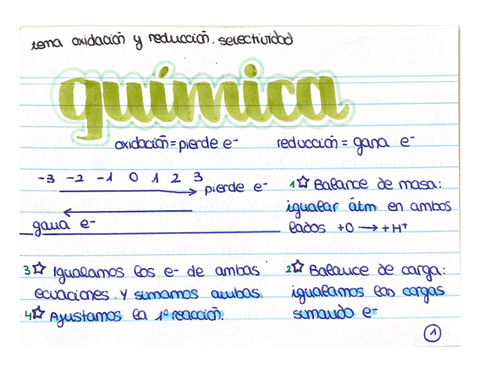 tema oxidación y reducción. selectividad
química
oxidación = pierde e- reducción = gana e-
-3 -2 -1 0 1 2 3
pierde e-
gana e-
1☆ Balance de masa:
igualar átm en ambos
lados +O → + H+
2☆ Balance de carga:
igualamos las cargas
sumando e-
3☆ Igualamos los e- de ambas
ecuaciones y sumamos ambas.
4☆ Ajustamos la 1ª reacción.
1